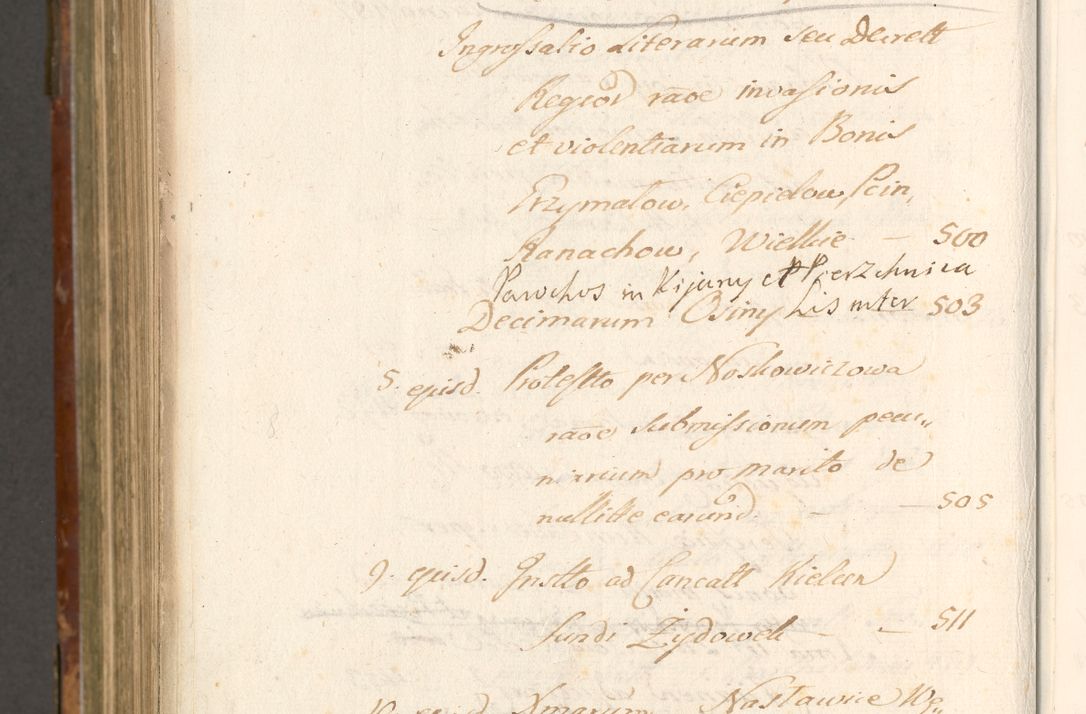 Ingrossatio Literarum seu Decrett
Regior raoe invasionis
et violentiarum in Bonis
Przymatow, Ciepielow, Pcin,
Kanachow, Wielkie - 500
Parochos in Kijany et Pierzchnica
Decimarum Osiny Lis inter 503
5. ejusd. Protestto per Noskowiczowa
raoe submissionum pecu„
niarium pro marito de
nullitte earund. - 505
9. ejusd. Instto ad Cancatt Kielcen
fundi Żydowek - - 511
ejusd. Xmarum Nastawice We„